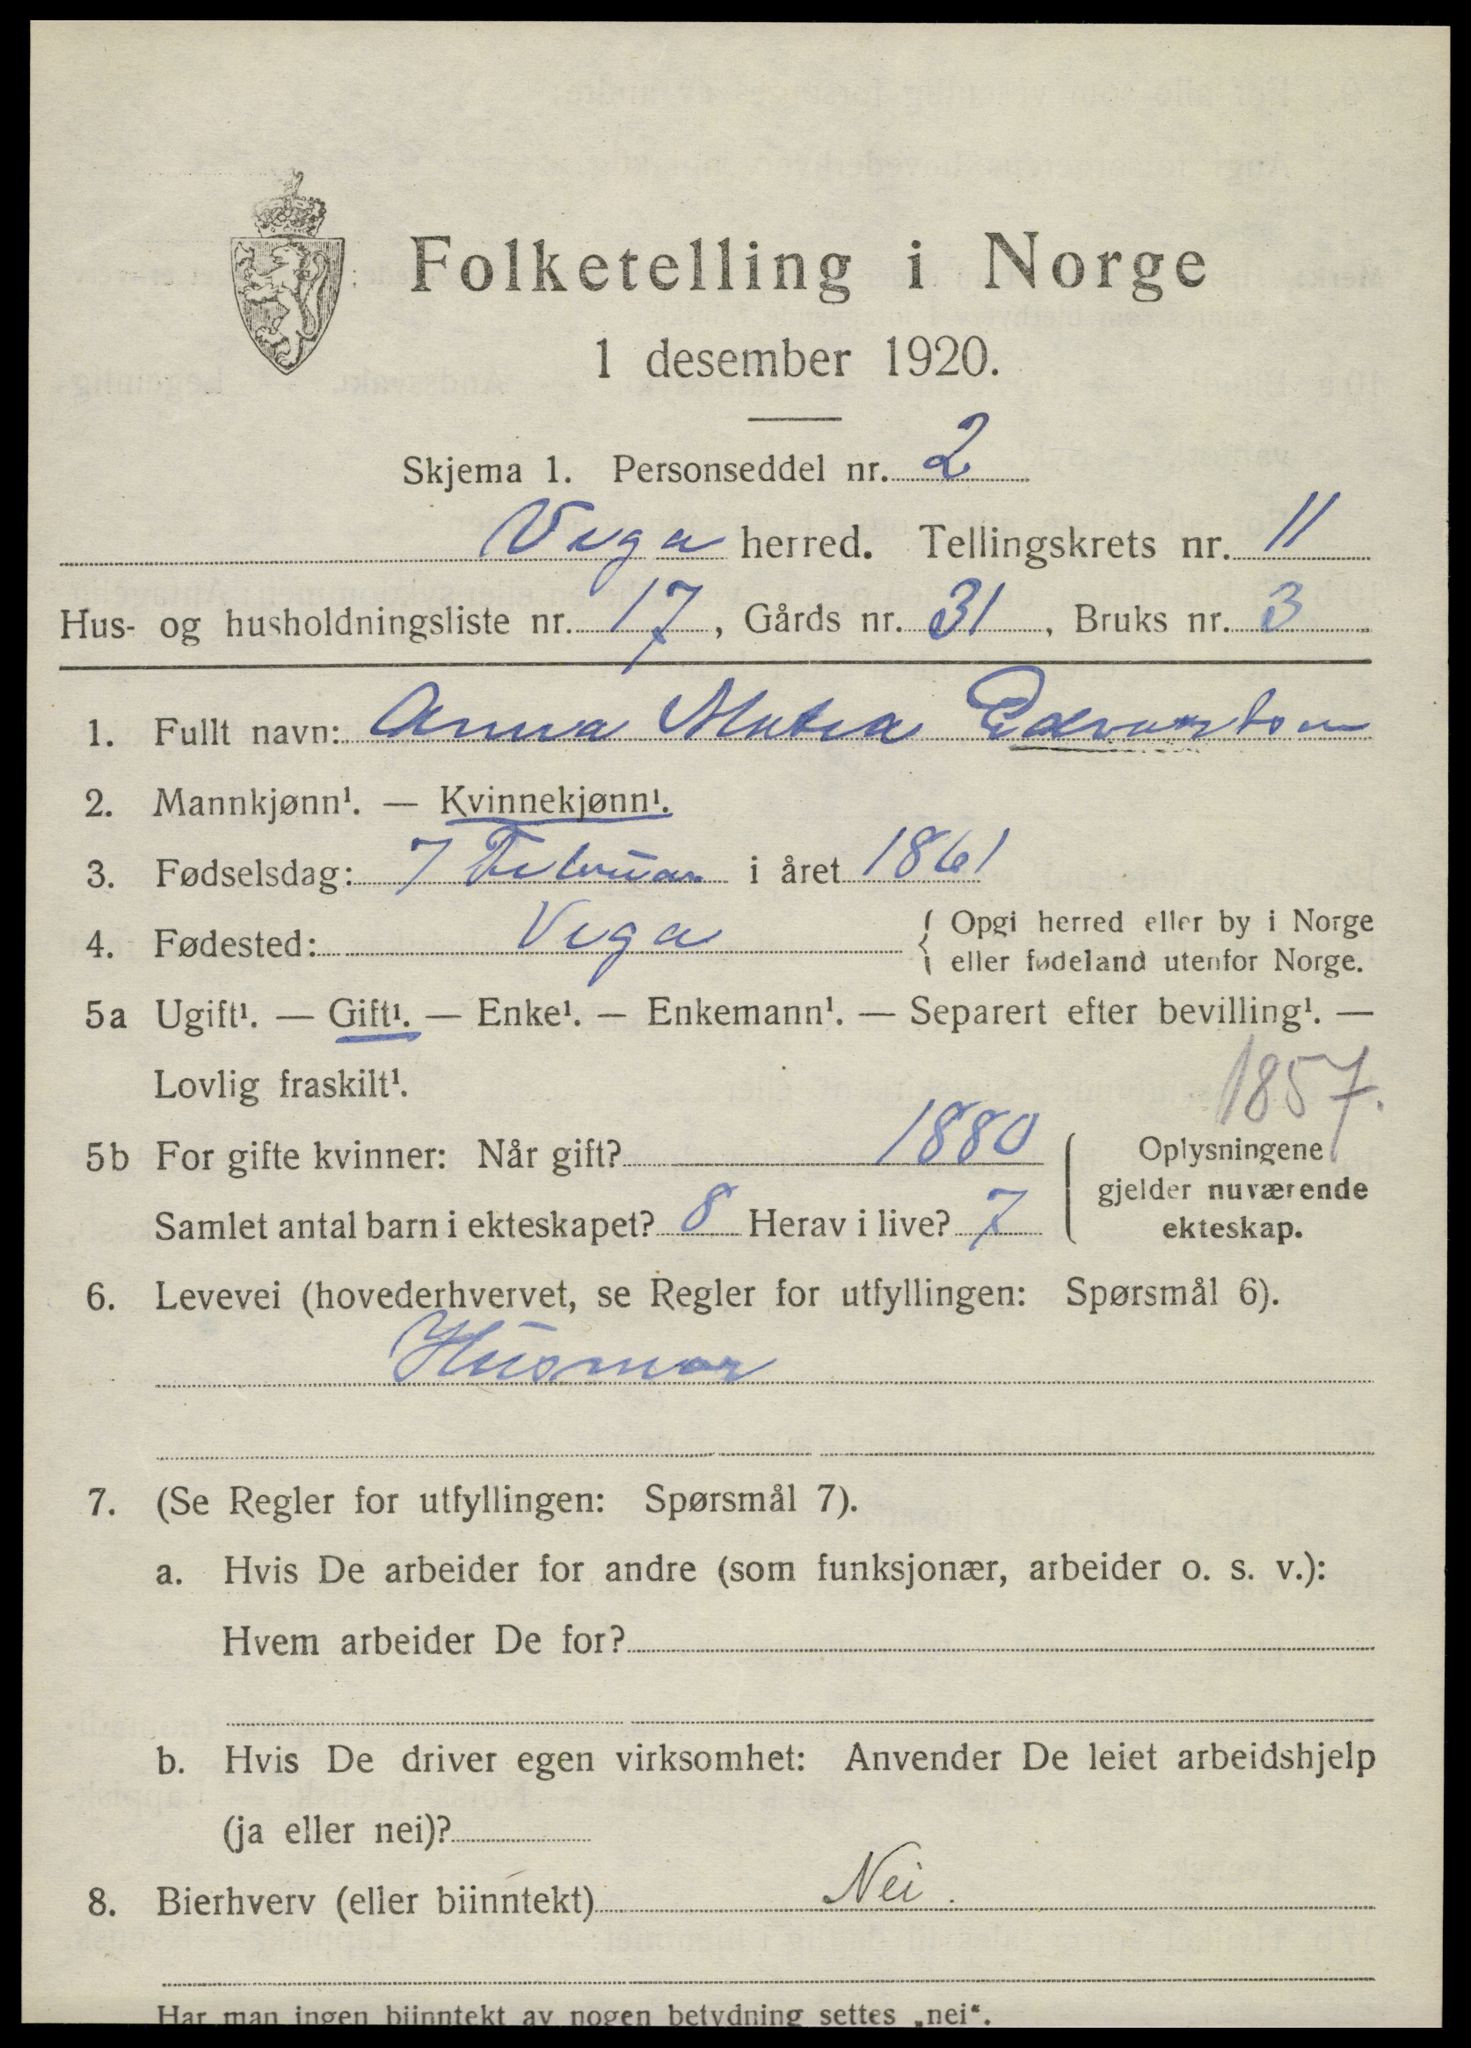 Folketelling i Norge
1 desember 1920.
Skjema 1. Personseddel nr. 2
Vega herred. Tellingskrets nr. 11
Hus- og husholdningsliste nr. 17, Gårds nr. 31, Bruks nr. 3
1. Fullt navn: Anna Edvartsen
2. Mannkjønn¹. — Kvinnekjønn¹.
3. Fødselsdag: 7 Februar i året 1861
4. Fødested: Vega { Opgi herred eller by i Norge
eller fødeland utenfor Norge.
5a Ugift¹. — Gift¹. — Enke¹. — Enkemann¹. — Separert efter bevilling¹. —
Lovlig fraskilt¹.
1857.
5b For gifte kvinner: Når gift? 1880
Samlet antal barn i ekteskapet? 8 Herav i live? 7
Oplysningene
gjelder nuværende
ekteskap.
6. Levevei (hovederhvervet, se Regler for utfyllingen: Spørsmål 6).
Husmor
7. (Se Regler for utfyllingen: Spørsmål 7).
a. Hvis De arbeider for andre (som funksjonær, arbeider o. s. v.):
Hvem arbeider De for?
b. Hvis De driver egen virksomhet: Anvender De leiet arbeidshjelp
(ja eller nei)?
8. Bierhverv (eller biinntekt) Nei.
Har man ingen biinntekt av nogen betydning settes „nei“.